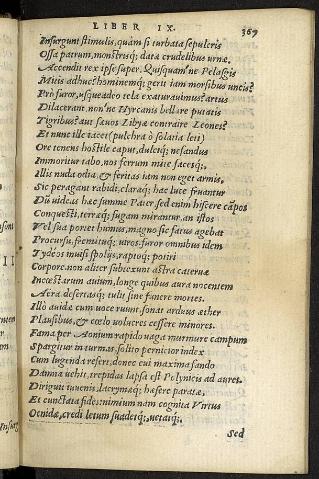 LIBER IX. 369
Insurgunt stimulis, quàm si turbata sepulcris
Ossa patrum, monstrisq; datæ crudelibus urnæ.
Accendit rex ipse super. Quisquam'ne Pelasgis
Mitis adhuc? hominemq; gerit iam morsibus uncis?
Pro furor, usqueadeo tela exaturauimus? artus
Dilacerant. non'ne Hyrcanis bellare putatis
Tigribus? aut sæuos Libyæ contraire Leones?
Et nunc ille iacet (pulchra ô solatia leti)
Ore tenens hostile caput, dulciq; nefandus
Immoritur tabo. nos ferrum mite facesq;.
Illis nuda odia, & feritas iam non eget armis.
Sic peragant rabidi, claraq; hac luce fruantur
Dū uideas hæc summe Pater sed enim hiscere cāpos
Conquesti, terræq; fugam mirantur. an istos
Vel sua portet humus. magno sic fatus agebat
Procursu, fremituq; uiros. furor omnibus idem
Tydeos inuisi spolijs, raptoq; potiri
Corpore. non aliter subtexunt astra cateruæ
Incestarum auium, longe quibus aura nocentem
Aëra desertasq; tulit sine funere mortes.
Illò auidæ cum uoce ruunt. sonat arduus æther
Plausibus, & cœlo uolucres cessere minores.
Fama per Aonium rapido uaga murmure campum
Spargitur in turmas, solito pernicior index
Cum lugenda refert: donec cui maxima fando
Damna uehit, trepidas lapsa est Polynicis ad aures.
Diriguit iuuenis, lacrymæq; hæsere paratæ,
Et cunctata fides: nimium nam cognita Virtus
Oenidæ, credi letum suadetq;, uetatq;.
Sed